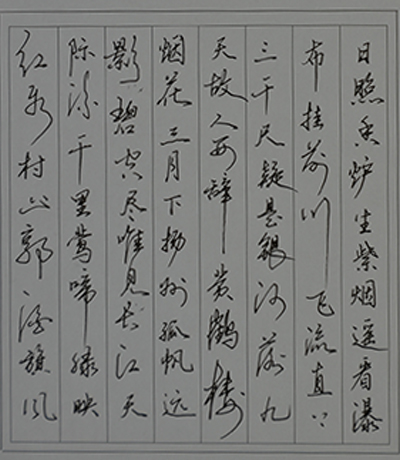 日照香炉生紫烟遥看瀑
布挂前川飞流直下
三千尺疑是银河落九
天故人西辞黄鹤楼
烟花三月下扬州孤帆远
影碧空尽唯见长江天
际流千里莺啼绿映
红水村山郭酒旗风